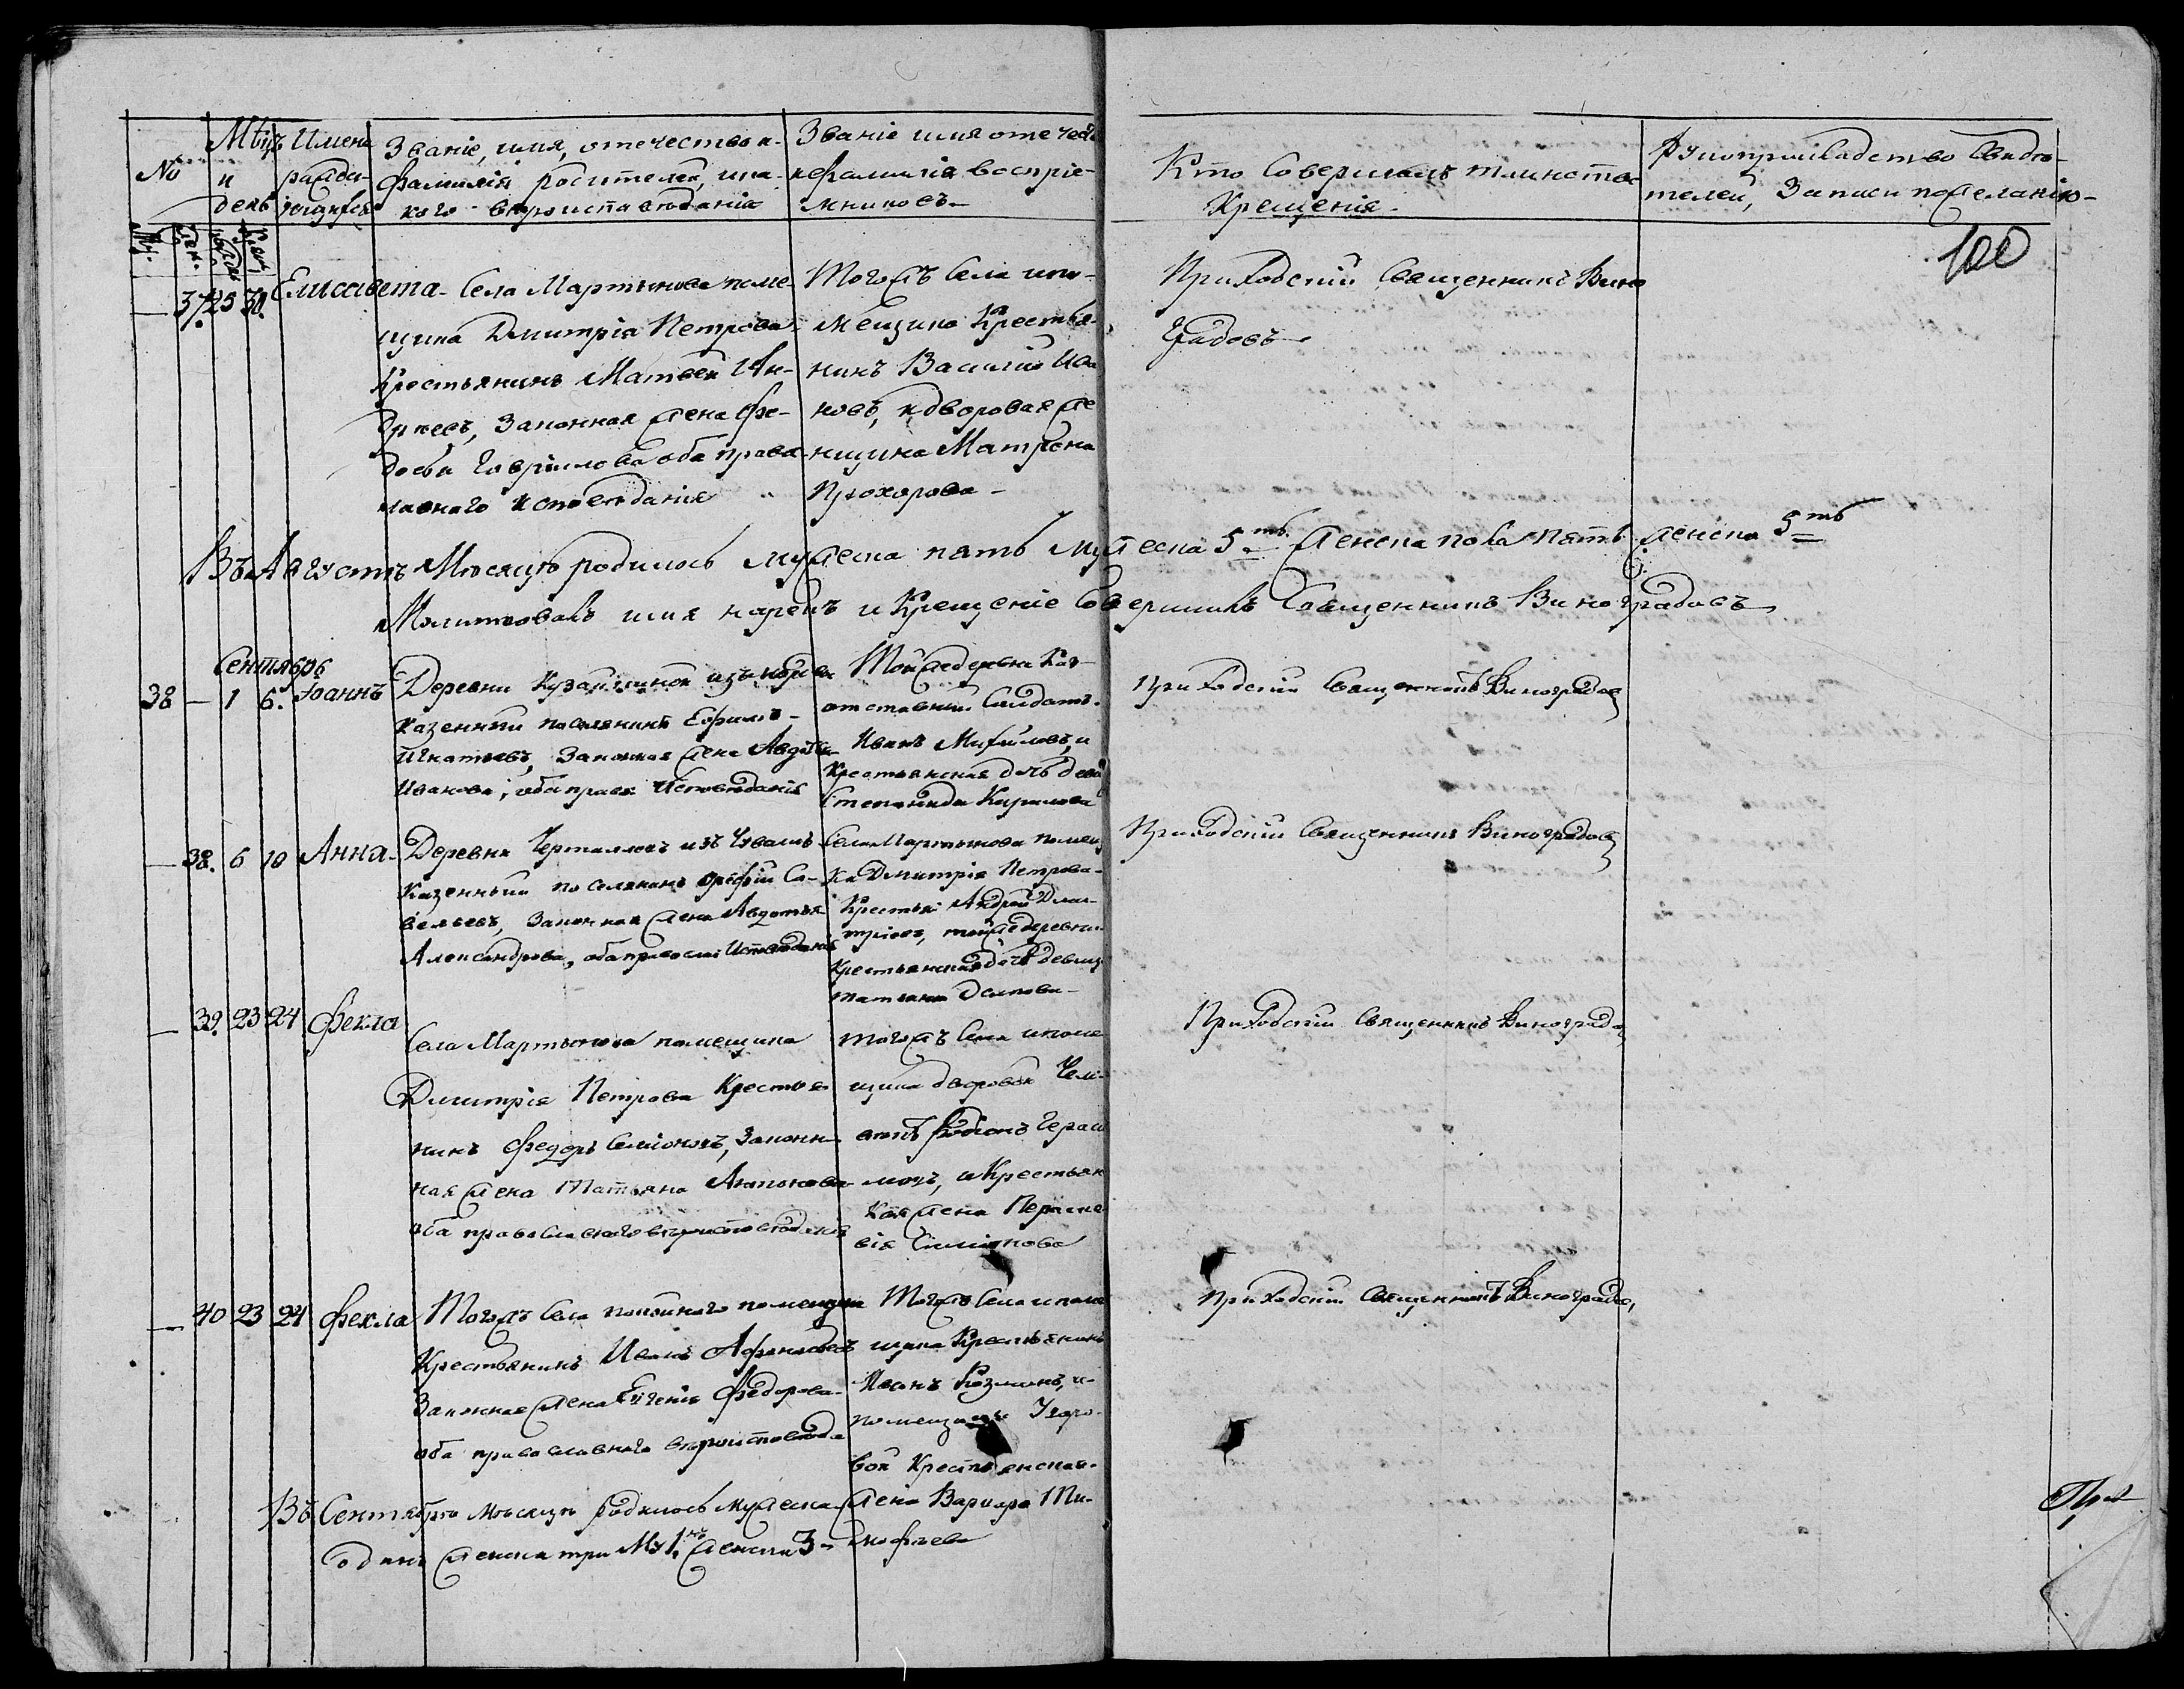 №
Мѣцъ
и
день
Имена
раждающихся
Званіе, имя, отечество и
фамилія родителей, и ка-
кого вѣроисповѣданія
Званіе имя отечес
и фамилія воспріе-
мниковъ
Кто Совершалъ таинство
Крещенія
Рукоприкладство Свидѣ-
телей, Записи по желанію
100
37. 25 30. Елисавета
Села Мартынова поме-
щика Дмитрія Петрова
Крестьянинъ Матвей Ан-
дреевъ, Законная жена Фе-
досья Гаврилова оба право-
лавнаго исповѣданія
Тогожъ Села и по-
мещика Крестья-
нинъ Василій Ива
новъ, и дворовая же
нщина Матрена
Прохорова
Приходскій Священникъ Вино
градовъ
Въ Августѣ Мѣсяцѣ родилось мужеска пять мужеска 5ть женска пола пять женска 5ть
Молитвовалъ имя нарекъ и Крещеніе Совершилъ Священникъ Виноградовъ
Сентябрь
38 — 1 6. Іоаннъ
Деревни
Казенный поселянинъ Ефимъ
Игнатьевъ, Законная жена Авдотья
Иванова, оба прав. Исповѣданія
Тойже деревни
отставный Салдатъ
Иванъ Михайловъ, и
Крестьянская дочь девка
Степанида Кирилова
Приходскій Священникъ Виноградов
— 38. 6 10 Анна
Деревни изъ Чувашъ
Казенный поселянинъ Са-
вельевъ, Законная жена Авдотья
Александрова, оба православ Исповѣданія
Села Мартынова помещ
ка Дмитрія Петрова
Крестья Андрей Дми-
тріевъ, тойже деревни
Крестьянская дочь девица
Татьяна
Приходскій Священникъ Виноградов
— 39. 23 24 Фекла
Села Мартынова помещика
Дмитрія Петрова Крестья
нинъ Федоръ Семіоновъ, Законн
ная жена Татьяна Антонова
оба православнаго вѣроисповѣданія
тогожъ Села и поме
щика дворовый Чело-
векъ Родіонъ Гераси
мовъ, и Крестьянс
кая жена Параске
вія Симіонова
Приходскій Священникъ Виноградо
— 40 23 24 Фекла
Тогожъ Села покойнаго помещика
Крестьянинъ Иванъ Афанасьевъ
Законная жена Евгенія Федорова
оба православнаго вѣроисповѣда
Тогожъ Села и поме
щика Крестьянинъ
Иванъ Козминъ, и
помещицы
вой Крестьянская
жена Варвара Ти-
мофеева
Приходскій Священникъ Виноградо
Въ Сентябрѣ мѣсяцѣ родилось мужеска
одинъ женска три Му 1. женска 3